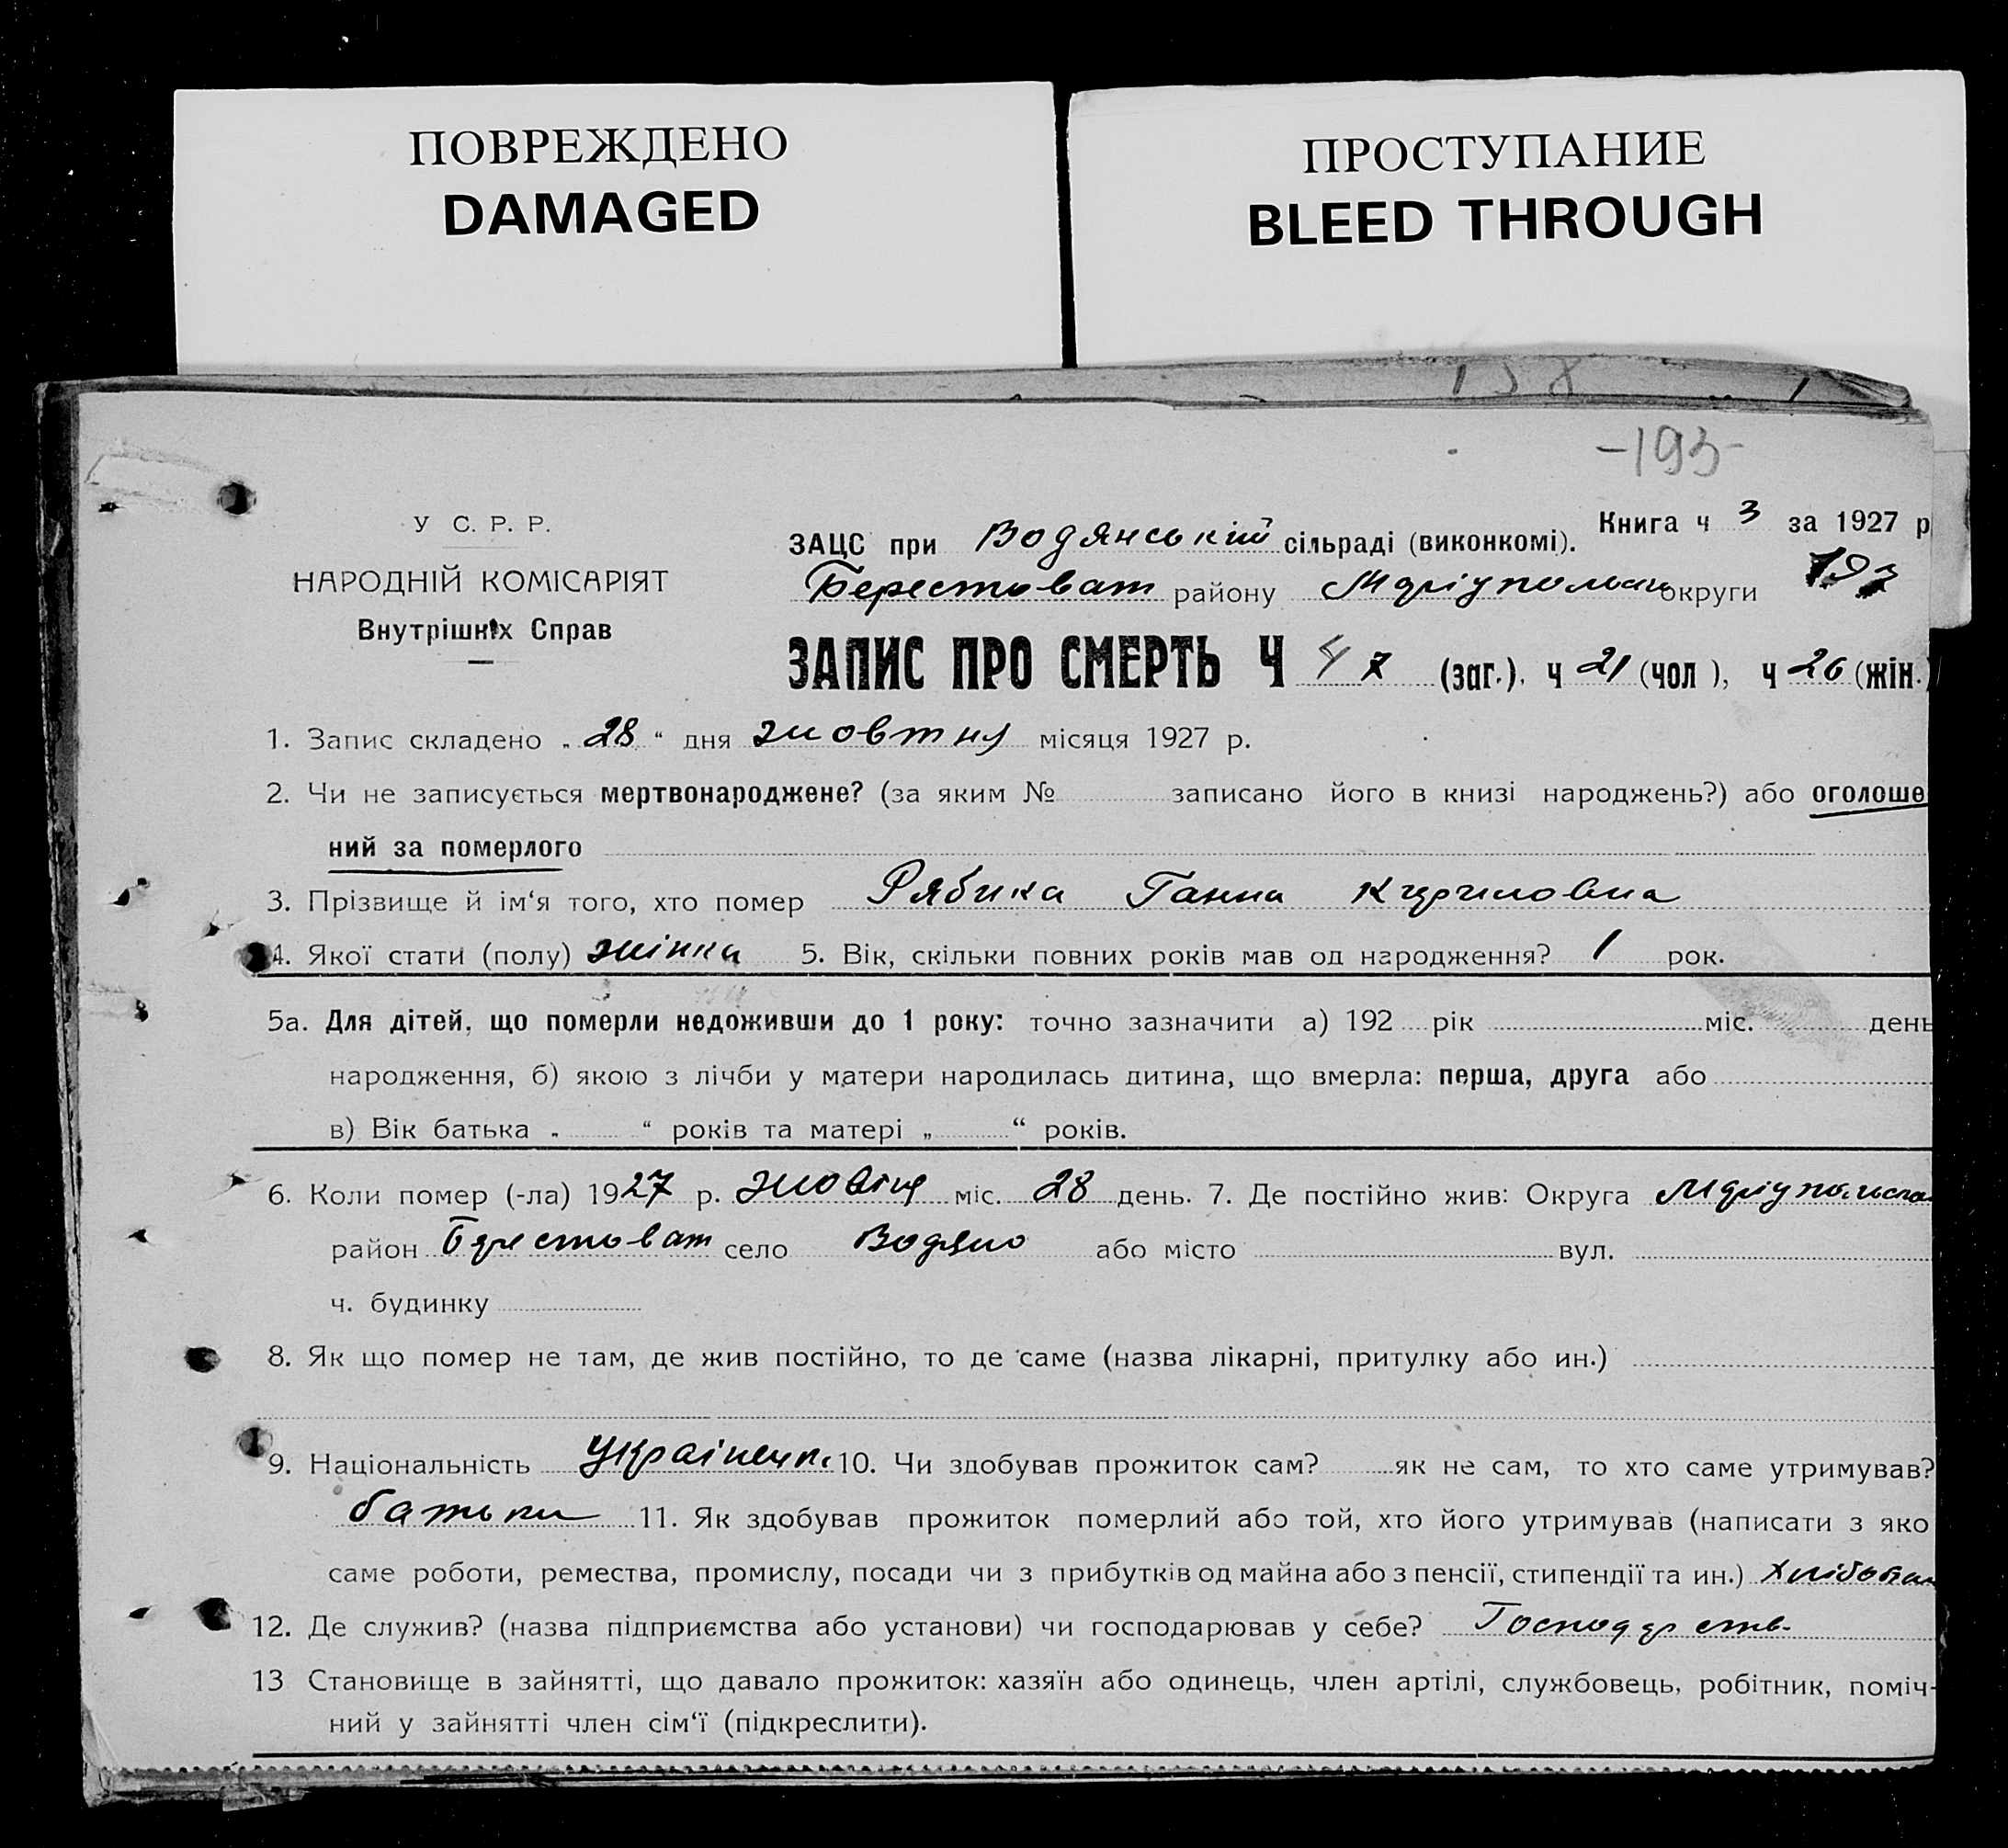 ПОВРЕЖДЕНО
DAMAGED
ПРОСТУПАНИЕ
BLEED THROUGH
-193-
У С. Р. Р.
НАРОДНІЙ КОМІСАРІЯТ
Внутрішніх Справ
Книга ч 3 за 1927 р
ЗАЦС при Водянській сільраді (виконкомі).
Берестоват району Маріупольськ округи 193
ЗАПИС ПРО СМЕРТЬ Ч 47 (заг.). ч 21 (чол ), ч 26 (жін.)
1. Запис складено „ 28 “ дня жовтня місяця 1927 р.
2. Чи не записується мертвонароджене? (за яким № записано його в книзі народжень?) або оголоше
ний за померлого
3. Прізвище й ім‘я того, хто помер Рябика Ганна Кириловна
4. Якої стати (полу) жінка 5. Вік, скільки повних років мав од народження? 1 рок.
5а. Для дітей, що померли недоживши до 1 року: точно зазначити а) 192 рік міс. день
народження, б) якою з лічби у матери народилась дитина, що вмерла: перша, друга або
в) Вік батька „ “ років та матері „ “ років.
6. Коли помер (-ла) 1927 р. міс. 28 день. 7. Де постійно жив: Округа Маріупольська
район Берестоват село Водяно або місто вул.
ч. будинку
8. Як що помер не там, де жив постійно, то де саме (назва лікарні, притулку або ин.)
9. Національність 10. Чи здобував прожиток сам? як не сам, то хто саме утримував?
батьки 11. Як здобував прожиток померлий або той, хто його утримував (написати з яко
саме роботи, ремества, промислу, посади чи з прибутків од майна або з пенсії, стипендії та ин.)
12. Де служив? (назва підприємства або установи) чи господарював у себе? Господарств.
13 Становище в зайнятті, що давало прожиток: хазяїн або одинець, член артілі, службовець, робітник, поміч-
ний у зайнятті член сім‘ї (підкреслити).